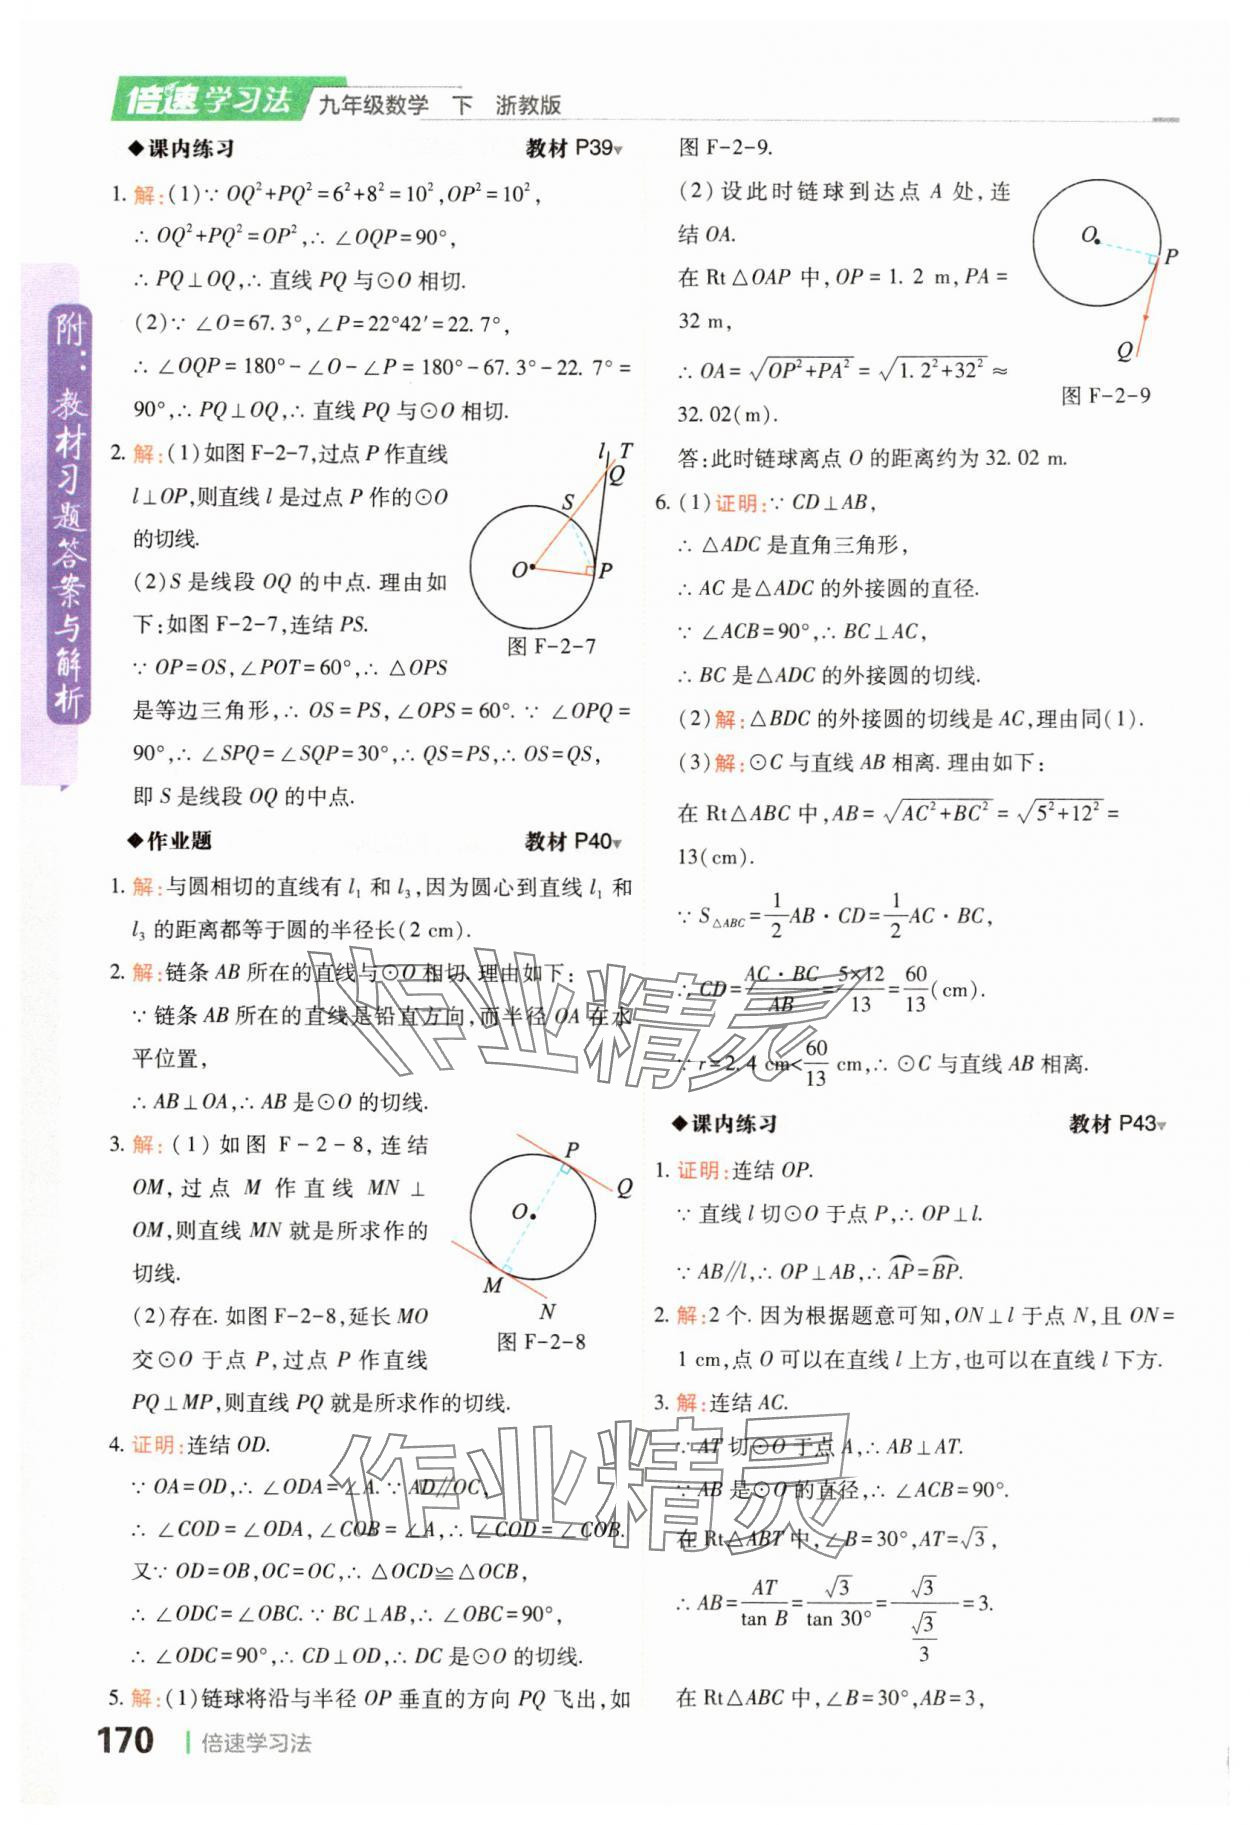 倍速学习法 九年级数学 下 浙教版
附：教材习题答案与解析
◆课内练习 教材 P39
1. 解:(1)∵ OQ²+PQ²=6²+8²=10²,OP²=10²,
∴ OQ²+PQ²=OP²,∴ ∠OQP=90°,
∴ PQ⊥OQ,∴ 直线 PQ 与⊙O 相切.
(2)∵ ∠O=67.3°,∠P=22°42′=22.7°,
∴ ∠OQP=180°-∠O-∠P=180°-67.3°-22.7°=
90°,∴ PQ⊥OQ,∴ 直线 PQ 与⊙O 相切.
2. 解:(1)如图 F-2-7,过点 P 作直线
l⊥OP,则直线 l 是过点 P 作的⊙O
的切线.
(2)S 是线段 OQ 的中点. 理由如
下:如图 F-2-7,连结 PS.
∵ OP=OS,∠POT=60°,∴ △OPS
l T
Q
S
O P
图 F-2-7
是等边三角形,∴ OS=PS,∠OPS=60°. ∵ ∠OPQ=
90°,∴ ∠SPQ=∠SQP=30°,∴ QS=PS,∴ OS=QS,
即 S 是线段 OQ 的中点.
◆作业题 教材 P40
1. 解:与圆相切的直线有 l₁ 和 l₃,因为圆心到直线 l₁ 和
l₃ 的距离都等于圆的半径长(2 cm).
2. 解:链条 AB 所在的直线与⊙O 相切. 理由如下:
∵ 链条 AB 所在的直线是铅直方向,而半径 OA 在水
平位置,
∴ AB⊥OA,∴ AB 是⊙O 的切线.
3. 解:(1)如图 F-2-8,连结
OM,过点 M 作直线 MN⊥
OM,则直线 MN 就是所求作的
切线.
(2)存在. 如图 F-2-8,延长 MO
交⊙O 于点 P,过点 P 作直线
PQ⊥MP,则直线 PQ 就是所求作的切线.
P
Q
O
M
N
图 F-2-8
4. 证明:连结 OD.
∵ OA=OD,∴ ∠ODA=∠A. ∵ AD∥OC,
∴ ∠COD=∠ODA,∠COB=∠A,∴ ∠COD=∠COB.
又∵ OD=OB,OC=OC,∴ △OCD≌△OCB,
∴ ∠ODC=∠OBC. ∵ BC⊥AB,∴ ∠OBC=90°,
∴ ∠ODC=90°,∴ CD⊥OD,∴ DC 是⊙O 的切线.
5. 解:(1)链球将沿与半径 OP 垂直的方向 PQ 飞出,如
图 F-2-9.
(2)设此时链球到达点 A 处,连
结 OA.
在 Rt△OAP 中,OP=1.2 m,PA=
32 m,
∴ OA=√(OP²+PA²)=√(1.2²+32²)≈
32.02(m).
O
P
Q
图 F-2-9
答:此时链球离点 O 的距离约为 32.02 m.
6. (1)证明:∵ CD⊥AB,
∴ △ADC 是直角三角形,
∴ AC 是△ADC 的外接圆的直径.
∵ ∠ACB=90°,∴ BC⊥AC,
∴ BC 是△ADC 的外接圆的切线.
(2)解:△BDC 的外接圆的切线是 AC,理由同(1).
(3)解:⊙C 与直线 AB 相离. 理由如下:
在 Rt△ABC 中,AB=√(AC²+BC²)=√(5²+12²)=
13(cm).
∵ S△ABC=1/2 AB·CD=1/2 AC·BC,
∴ CD=AC·BC/AB=5×12/13=60/13(cm).
∵ r=2.4 cm<60/13 cm,∴ ⊙C 与直线 AB 相离.
◆课内练习 教材 P43
1. 证明:连结 OP.
∵ 直线 l 切⊙O 于点 P,∴ OP⊥l.
∵ AB∥l,∴ OP⊥AB,∴ ⌒AP=⌒BP.
2. 解:2 个. 因为根据题意可知,ON⊥l 于点 N,且 ON=
1 cm,点 O 可以在直线 l 上方,也可以在直线 l 下方.
3. 解:连结 AC.
∵ AT 切⊙O 于点 A,∴ AB⊥AT.
∵ AB 是⊙O 的直径,∴ ∠ACB=90°.
在 Rt△ABT 中,∠B=30°,AT=√3,
∴ AB=AT/tan B=√3/tan 30°=√3/(√3/3)=3.
在 Rt△ABC 中,∠B=30°,AB=3,
作业精灵
作业精灵
170 倍速学习法